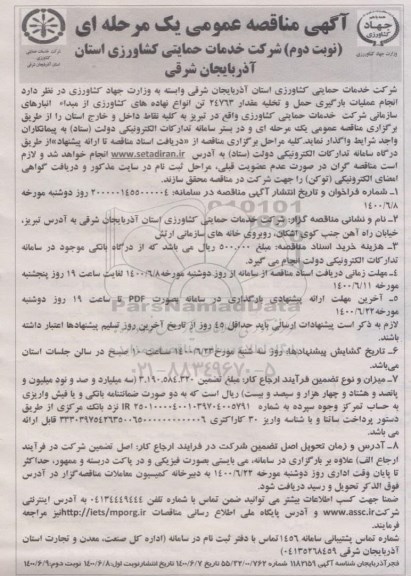 آگهی مناقصه عمومی یک مرحله ای
(نوبت دوم) شرکت خدمات حمایتی کشاورزی استان
آذربایجان شرقی
جهاد کشاورزی
وزارت جهاد کشاورزی
شرکت خدمات حمایتی کشاورزی استان آذربایجان شرقی وابسته به وزارت جهاد کشاورزی در نظر دارد
انجام عملیات بارگیری حمل و تخلیه مقدار ۲۴۷۶۳ تن انواع نهاده های کشاورزی از مبدا» انبارهای
سازمانی شرکت خدمات حمایتی کشاورزی واقع در تبریز به کلیه نقاط داخل و خارج استان را از طریق
برگزاری مناقصه عمومی یک مرحله ای و در بستر سامانه تدارکات الکترونیکی دولت (ستاد) به پیمانکاران
واجد شرایط واگذار نماید.کلیه مراحل برگزاری مناقصه از «دریافت اسناد مناقصه تا ارائه پیشنهاد»از طریق
درگاه سامانه تدارکات الکترونیکی دولت (ستاد) به آدرس www.setadiran.ir انجام خواهد شد و لازم
است مناقصه گران در صورت عدم عضویت قبلی، مراحل ثبت نام در سایت مذکور و دریافت گواهی
امضای الکترونیکی (توکن) را جهت شرکت در مناقصه محقق سازند.
۱ـ شماره فراخوان و تاریخ انتشار آگهی مناقصه در سامانه: روز دوشنبه مورخه
۱۴۰۰/۶/۸
۲ـ نام و نشانی مناقصه گزار: شرکت خدمات حمایتی کشاورزی استان آذربایجان شرقی به آدرس تبریز،
خیابان راه آهن جنب کوی اشکان، روبروی خانه های سازمانی ارتش
۳ـ هزینه خرید اسناد مناقصه: مبلغ ۵۰۰.۰۰۰ ریال می باشد که از درگاه بانکی موجود در سامانه
تدارکات الکترونیکی دولت انجام می گیرد.
۴ـ مهلت زمانی دریافت اسناد مناقصه از سامانه از روز دوشنبه مورخه ۱۴۰۰/۶/۸ لغایت ساعت ۱۹ روز پنجشنبه
مورخه ۱۴۰۰/۶/۱۱
۵ـ آخرین مهلت ارائه پیشنهادی بارگذاری در سامانه بصورت PDF تا ساعت ۱۹ روز دوشنبه
مورخه ۱۴۰۰/۶/۲۲
لازم به ذکر است پیشنهادات ارسالی باید حداقل ۴۵ روز از تاریخ آخرین روز تسلیم پیشنهادها اعتبار داشته
باشند.
۶ـ تاریخ گشایش پیشنهادها: روز سه شنبه مورخ ۱۴۰۰/۶/۲۳ ساعت ۱۰ صبح در سالن جلسات استان
می‌باشد.
۷ـ میزان و نوع تضمین فرآیند ارجاع کار: مبلغ تضمین ۳.۱۹۰.۵۸۴.۳۲۰ (سه میلیارد و صد و نود میلیون و
پانصد و هشتاد و چهار هزار و سیصد و بیست) ریال است که به دو صورت ضمانتنامه بانکی و یا فیش واریزی
به حساب تمرکز وجوه سپرده به شماره نزد بانک مرکزی از طریق
دستور پرداخت ساتنا و با شناسه واریز ۳۰ کاراکتری قابل ارائه
می باشد.
۸ـ آدرس و زمان تحویل اصل تضمین شرکت در فرآیند ارجاع کار: اصل تضمین شرکت در فرآیند
ارجاع (الف) علاوه بر بارگذاری در سامانه، می بایستی بصورت فیزیکی و در پاکت دربسته و ممهور، حداکثر
تا پایان وقت اداری روز دوشنبه مورخه ۱۴۰۰/۶/۲۲ به دبیرخانه کمیسیون معاملات مناقصه‌گزار در آدرس
فوق‌الذکر تحویل و رسید دریافت شود.
ضمنا جهت کسب اطلاعات بیشتر می توانید ضمن تماس با شماره تلفن ۰۴۱۳۴۴۴۹۴۴۴ به آدرس اینترنتی
شرکت www.assc.ir و آدرس پایگاه ملی اطلاع رسانی مناقصات http://iets/mporg.ir نیز مراجعه
فرمایند.
شماره تماس پشتیبانی سامانه ۱۴۵۶ تماس با دفتر ثبت نام در سامانه (اداره کل صنعت، معدن و تجارت استان
آذربایجان شرقی ۰۴۱۳۵۲۶۸۴۵۹)
شناسه آگهی ۱۱۸۳۱۵۹ تاریخ انتشار نوبت اول: ۱۴۰۰/۶/۸ نوبت دوم: ۱۴۰۰/۶/۹
ParsNamadData
۰۲۱-۸۸۳۴۹۶۷۰-۵